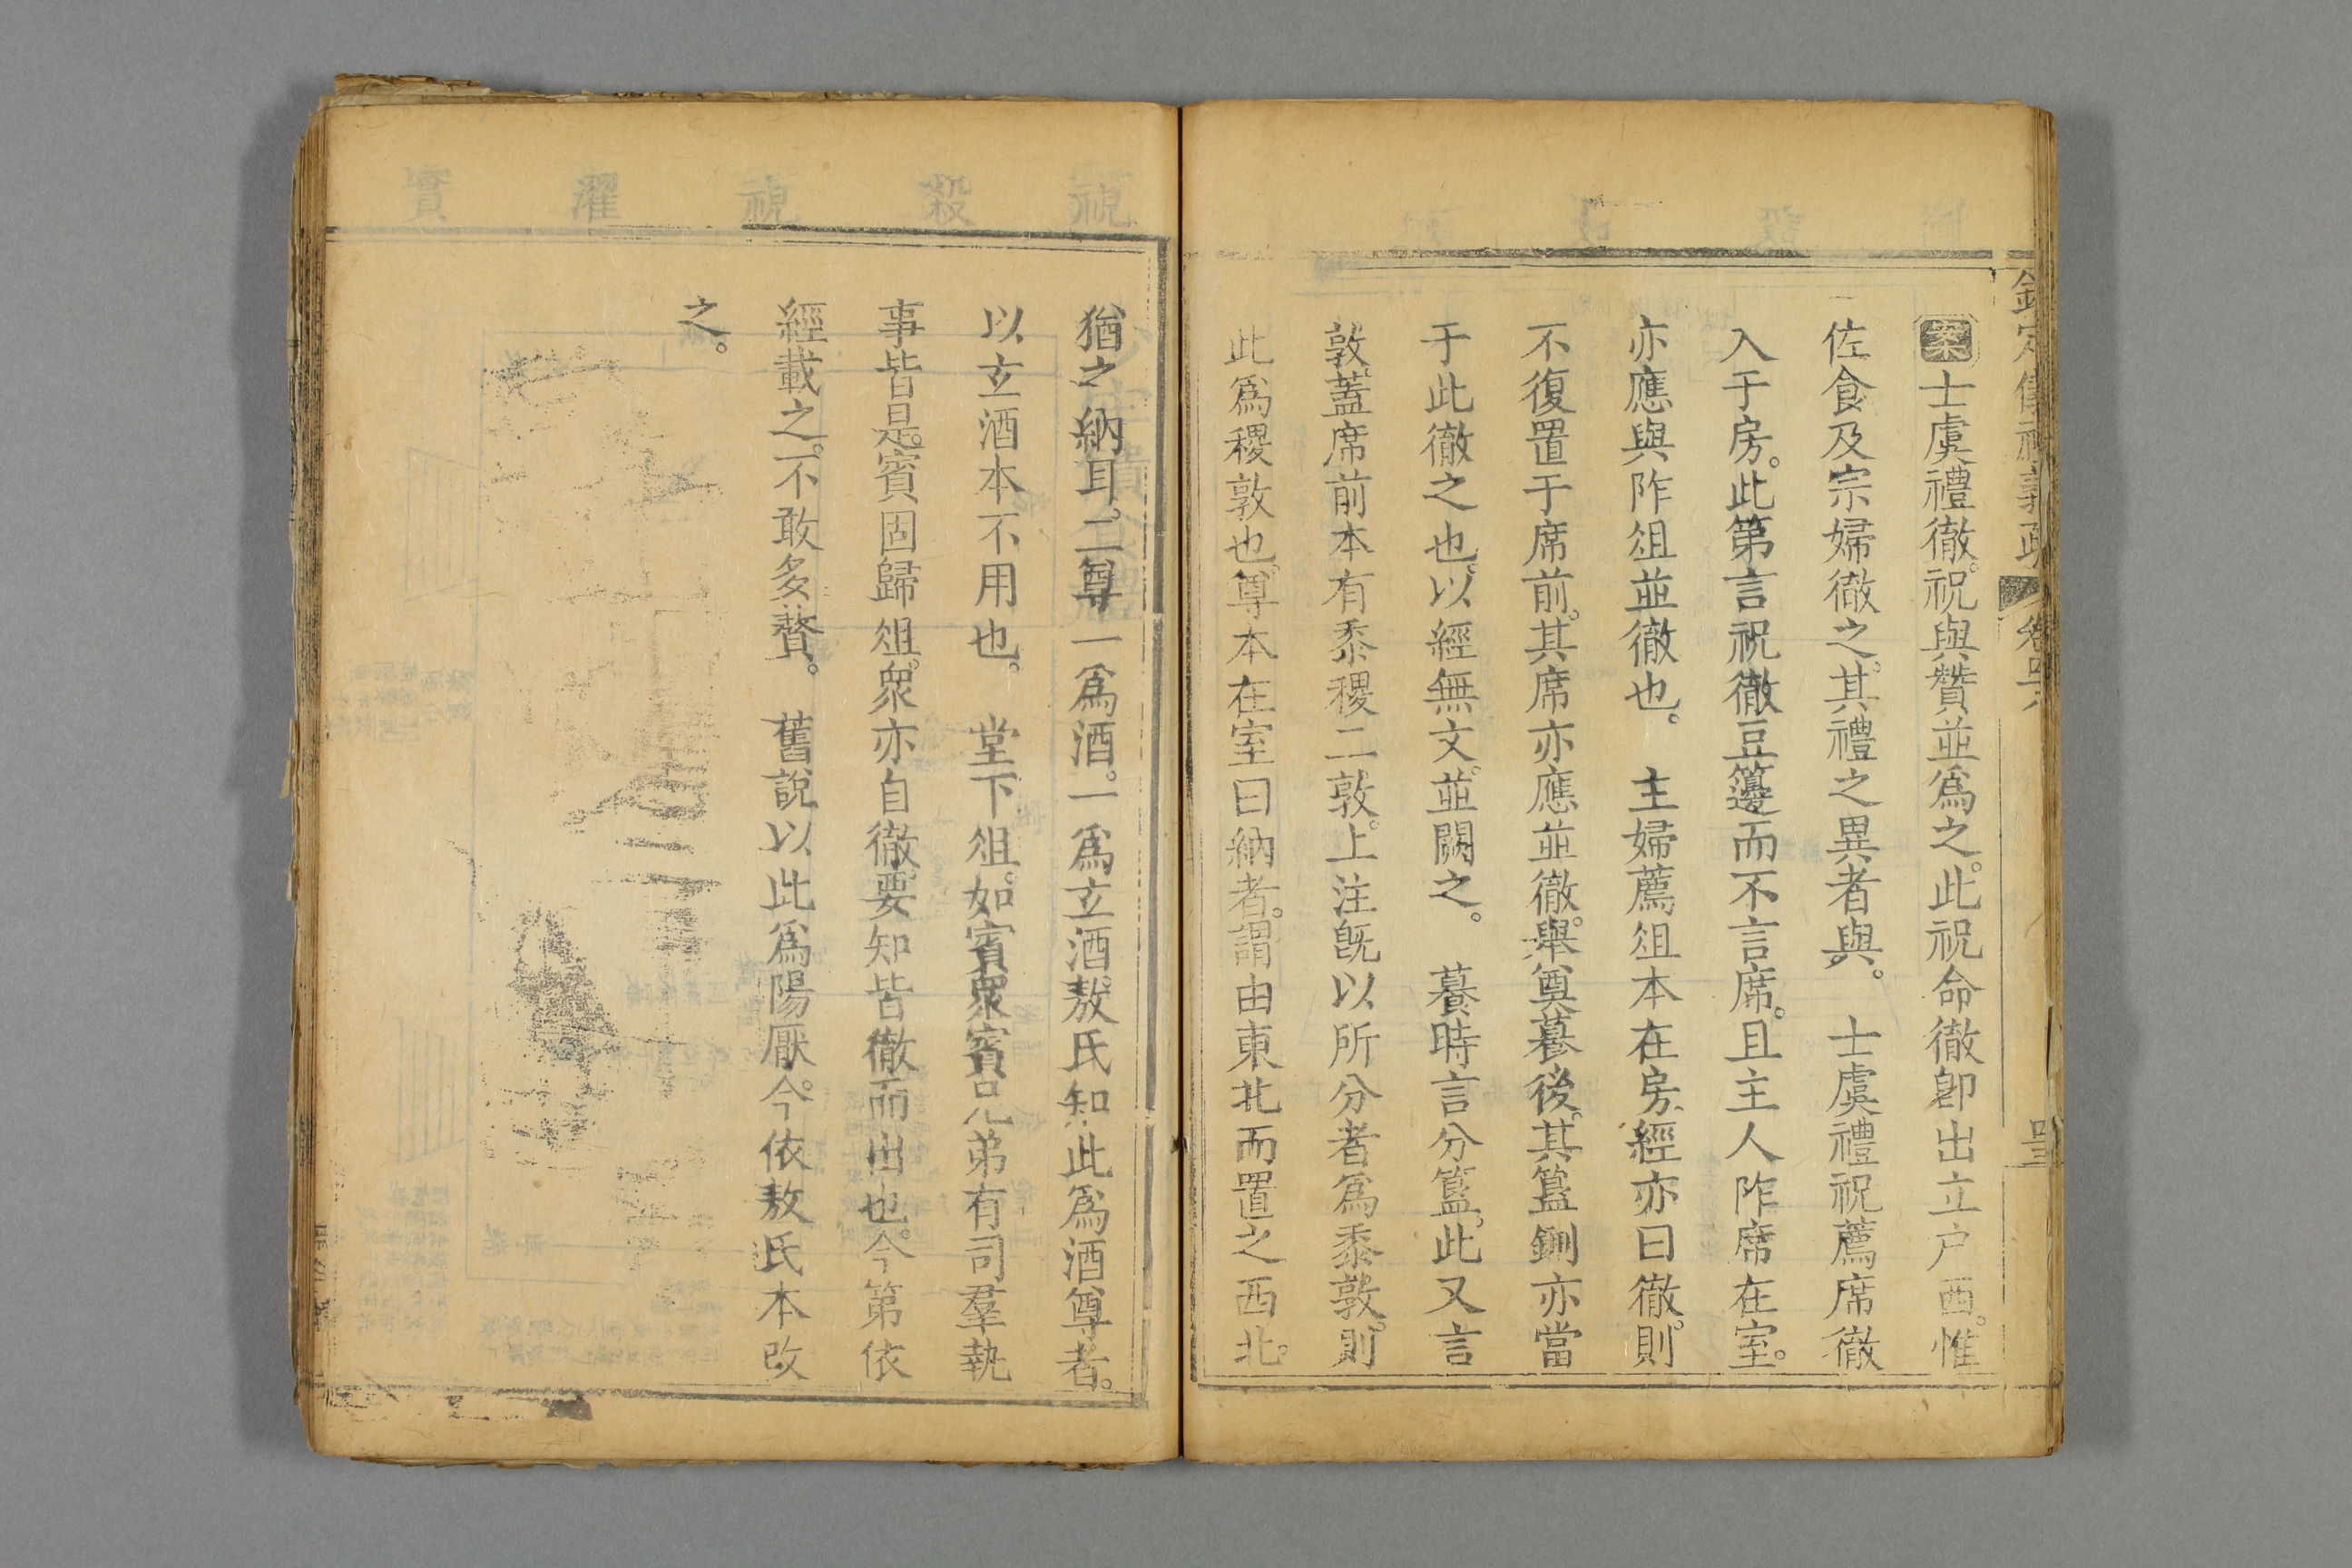 欽定儀禮義疏 卷
案士虞禮徹。祝與贊並爲之。此祝命徹卽出立户西。惟
佐食及宗婦徹之。其禮之異者與。 士虞禮祝薦席徹
入于房。此第言祝徹豆籩而不言席。且主人阼席在室。
亦應與阼俎並徹也。 主婦薦俎本在房。經亦曰徹。則
不復置于席前。其席亦應並徹。舉奠䕩後。其簋鉶亦當
于此徹之也。以經無文。並闕之。 䕩時言分簋。此又言
敦。蓋席前本有黍稷二敦。上注旣以所分者爲黍敦。則
此爲稷敦也。尊本在室曰納者。謂由東北而置之西北。
猶之納耳。二尊一爲酒。一爲玄酒。敖氏知此爲酒尊者。
以玄酒本不用也。 堂下俎。如賓衆賓兄弟有司羣執
事皆是。賓固歸俎。衆亦自徹。要知皆徹而出也。今第依
經載之。不敢多贅。 舊說以此爲陽厭。今依敖氏本改
之。
視 殺 視 濯 實